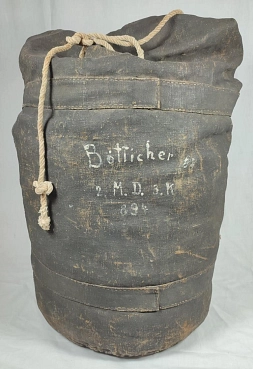 Bötticher
2. M. D. 3. K
894